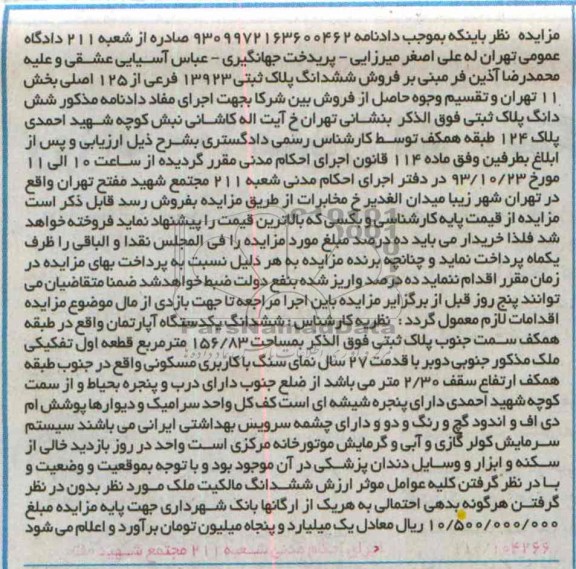 مزایده نظر باینکه بموجب دادنامه ۹۳۰۹۹۷۲۱۶۳۶۰۰۴۶۲ صادره از شعبه ۲۱۱ دادگاه
عمومی تهران له علی اصغر میرزایی - پریدخت جهانگیری - عباس آسیایی عشقی و علیه
محمدرضا آذین فر مبنی بر فروش ششدانگ پلاک ثبتی ۱۳۹۲۳ فرعی از ۱۲۵ اصلی بخش
۱۱ تهران و تقسیم وجوه حاصل از فروش بین شرکا بجهت اجرای مفاد دادنامه مذکور شش
دانگ پلاک ثبتی فوق الذکر بنشانی تهران خ آیت اله کاشانی نبش کوچه شهید احمدی
پلاک ۱۲۴ طبقه همکف توسط کارشناس رسمی دادگستری بشرح ذیل ارزیابی و پس از
ابلاغ بطرفین وفق ماده ۱۱۴ قانون اجرای احکام مدنی مقرر گردیده از ساعت ۱۰ الی ۱۱
مورخ ۹۳/۱۰/۲۳ در دفتر اجرای احکام مدنی شعبه ۲۱۱ مجتمع شهید مفتح تهران واقع
در تهران شهر زیبا میدان الغدیر خ مخابرات از طریق مزایده بفروش رسد قابل ذکر است
مزایده از قیمت پایه کارشناسی و بکسی که بالاترین قیمت را پیشنهاد نماید فروخته خواهد
شد فلذا خریدار می باید ده درصد مبلغ مورد مزایده را فی المجلس نقدا و الباقی را ظرف
یکماه پرداخت نماید و چنانچه برنده مزایده به هر دلیل نسبت به پرداخت بهای مزایده در
زمان مقرر اقدام ننماید ده درصد واریز شده بنفع دولت ضبط خواهد شد ضمنا متقاضیان می
توانند پنج روز قبل از برگزاری مزایده باین اجرا مراجعه تا جهت بازدی از مال موضوع مزایده
اقدامات لازم معمول گردد : نظریه کارشناس : ششدانگ یکدستگاه آپارتمان واقع در طبقه
همکف سمت جنوب پلاک ثبتی فوق الذکر بمساحت ۱۵۶/۸۳ مترمربع قطعه اول تفکیکی
ملک مذکور جنوبی دوبر با قدمت ۲۷ سال نمای سنگ با کاربری مسکونی واقع در جنوب طبقه
همکف ارتفاع سقف ۲/۳۰ متر می باشد از ضلع جنوب دارای درب و پنجره بحیاط و از سمت
کوچه شهید احمدی دارای پنجره شیشه ای است کف کل واحد سرامیک و دیوارها پوشش ام
دی اف و اندود گچ و رنگ و دو و دارای چشمه سرویس بهداشتی ایرانی می باشند سیستم
سرمایش کولر گازی و آبی و گرمایش موتورخانه مرکزی است واحد در روز بازدید خالی از
سکنه و ابزار و وسایل دندان پزشکی در آن موجود بود و با توجه بموقعیت و وضعیت و
با در نظر گرفتن کلیه عوامل موثر ارزش ششدانگ مالکیت ملک مورد نظر بدون در نظر
گرفتن هرگونه بدهی احتمالی به هریک از ارگانها بانک شهرداری جهت پایه مزایده مبلغ
۱۰/۵۰۰/۰۰۰/۰۰۰ ریال معادل یک میلیارد و پنجاه میلیون تومان برآورد و اعلام می شود
اجرای احکام مدنی شعبه ۲۱۱ مجتمع شهید